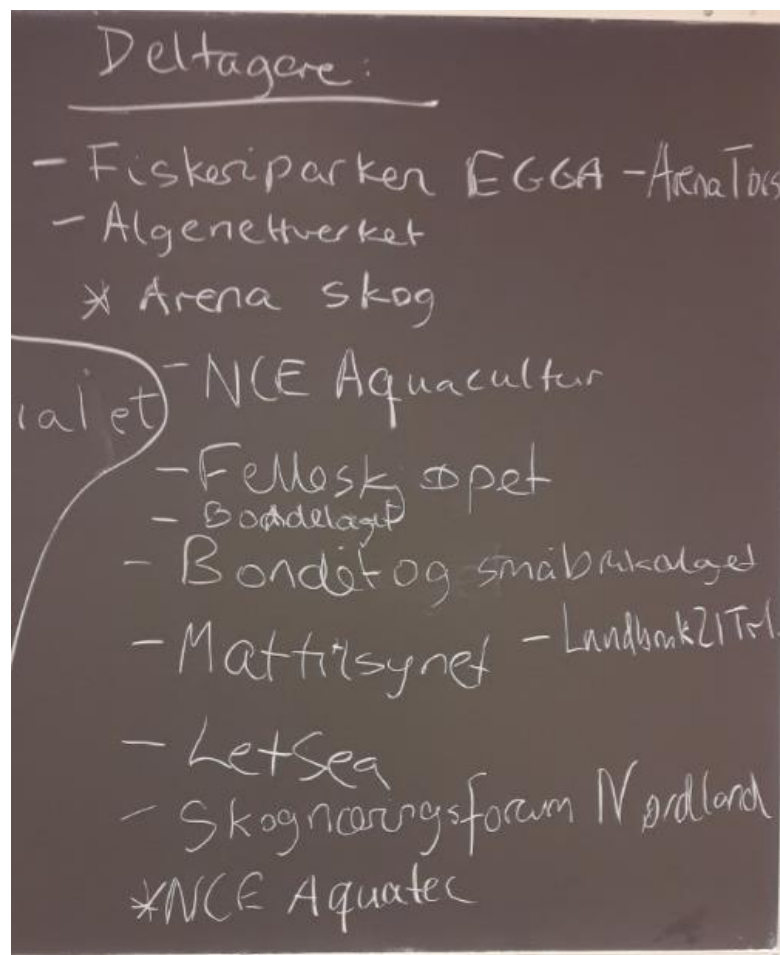 Deltagere:
- Fiskeriparken EGGA - Arena Tors
- Algenettverket
* Arena Skog
- NCE Aquacultur
ialet
- Felleskjøpet
- Bondelaget
- Bonde og småbrukalaget
- Mattilsynet - Landbruk21 Trl.
- LetSea
- Skognæringsforum Nordland
*NCE Aquatec